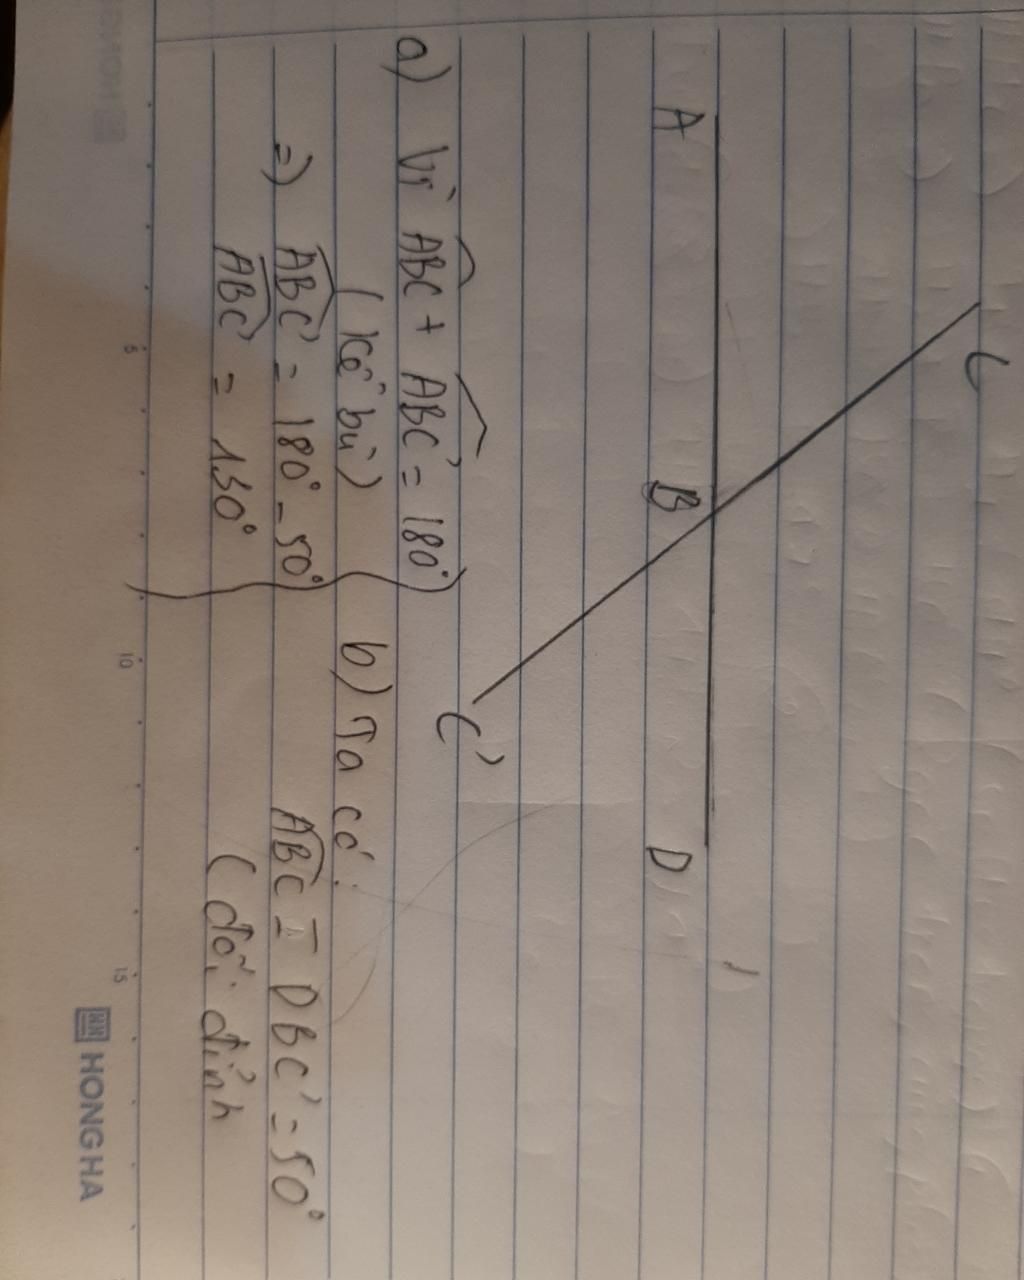 C
A
B
D
C'
a) Vì ABC + ABC' = 180°
(kề bù)
=) ABC' = 180° - 50°
ABC' = 130°
b) Ta có:
ABC = DBC' = 50°
(đối đỉnh
5
10
15
HONG HA